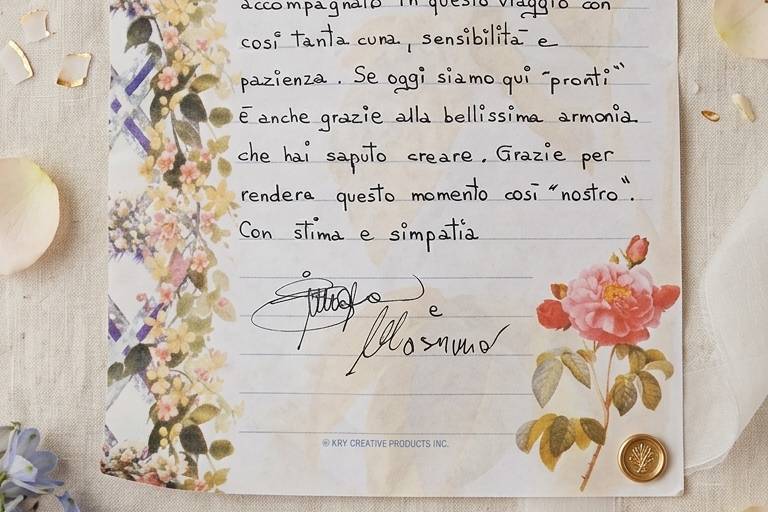 accompagnato in questo viaggio con
così tanta cura, sensibilità e
pazienza. Se oggi siamo qui "pronti"
è anche grazie alla bellissima armonia
che hai saputo creare. Grazie per
rendera questo momento così "nostro".
Con stima e simpatia
e
Massimo
© KRY CREATIVE PRODUCTS INC.